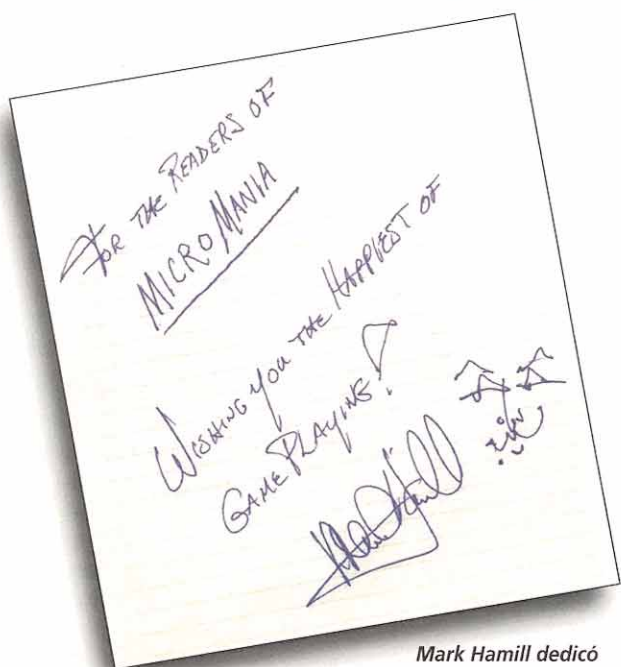 FOR THE READERS OF
MICROMANIA
WISHING YOU THE HAPPIEST OF
GAME PLAYING!
Mark Hamill
Mark Hamill dedicó